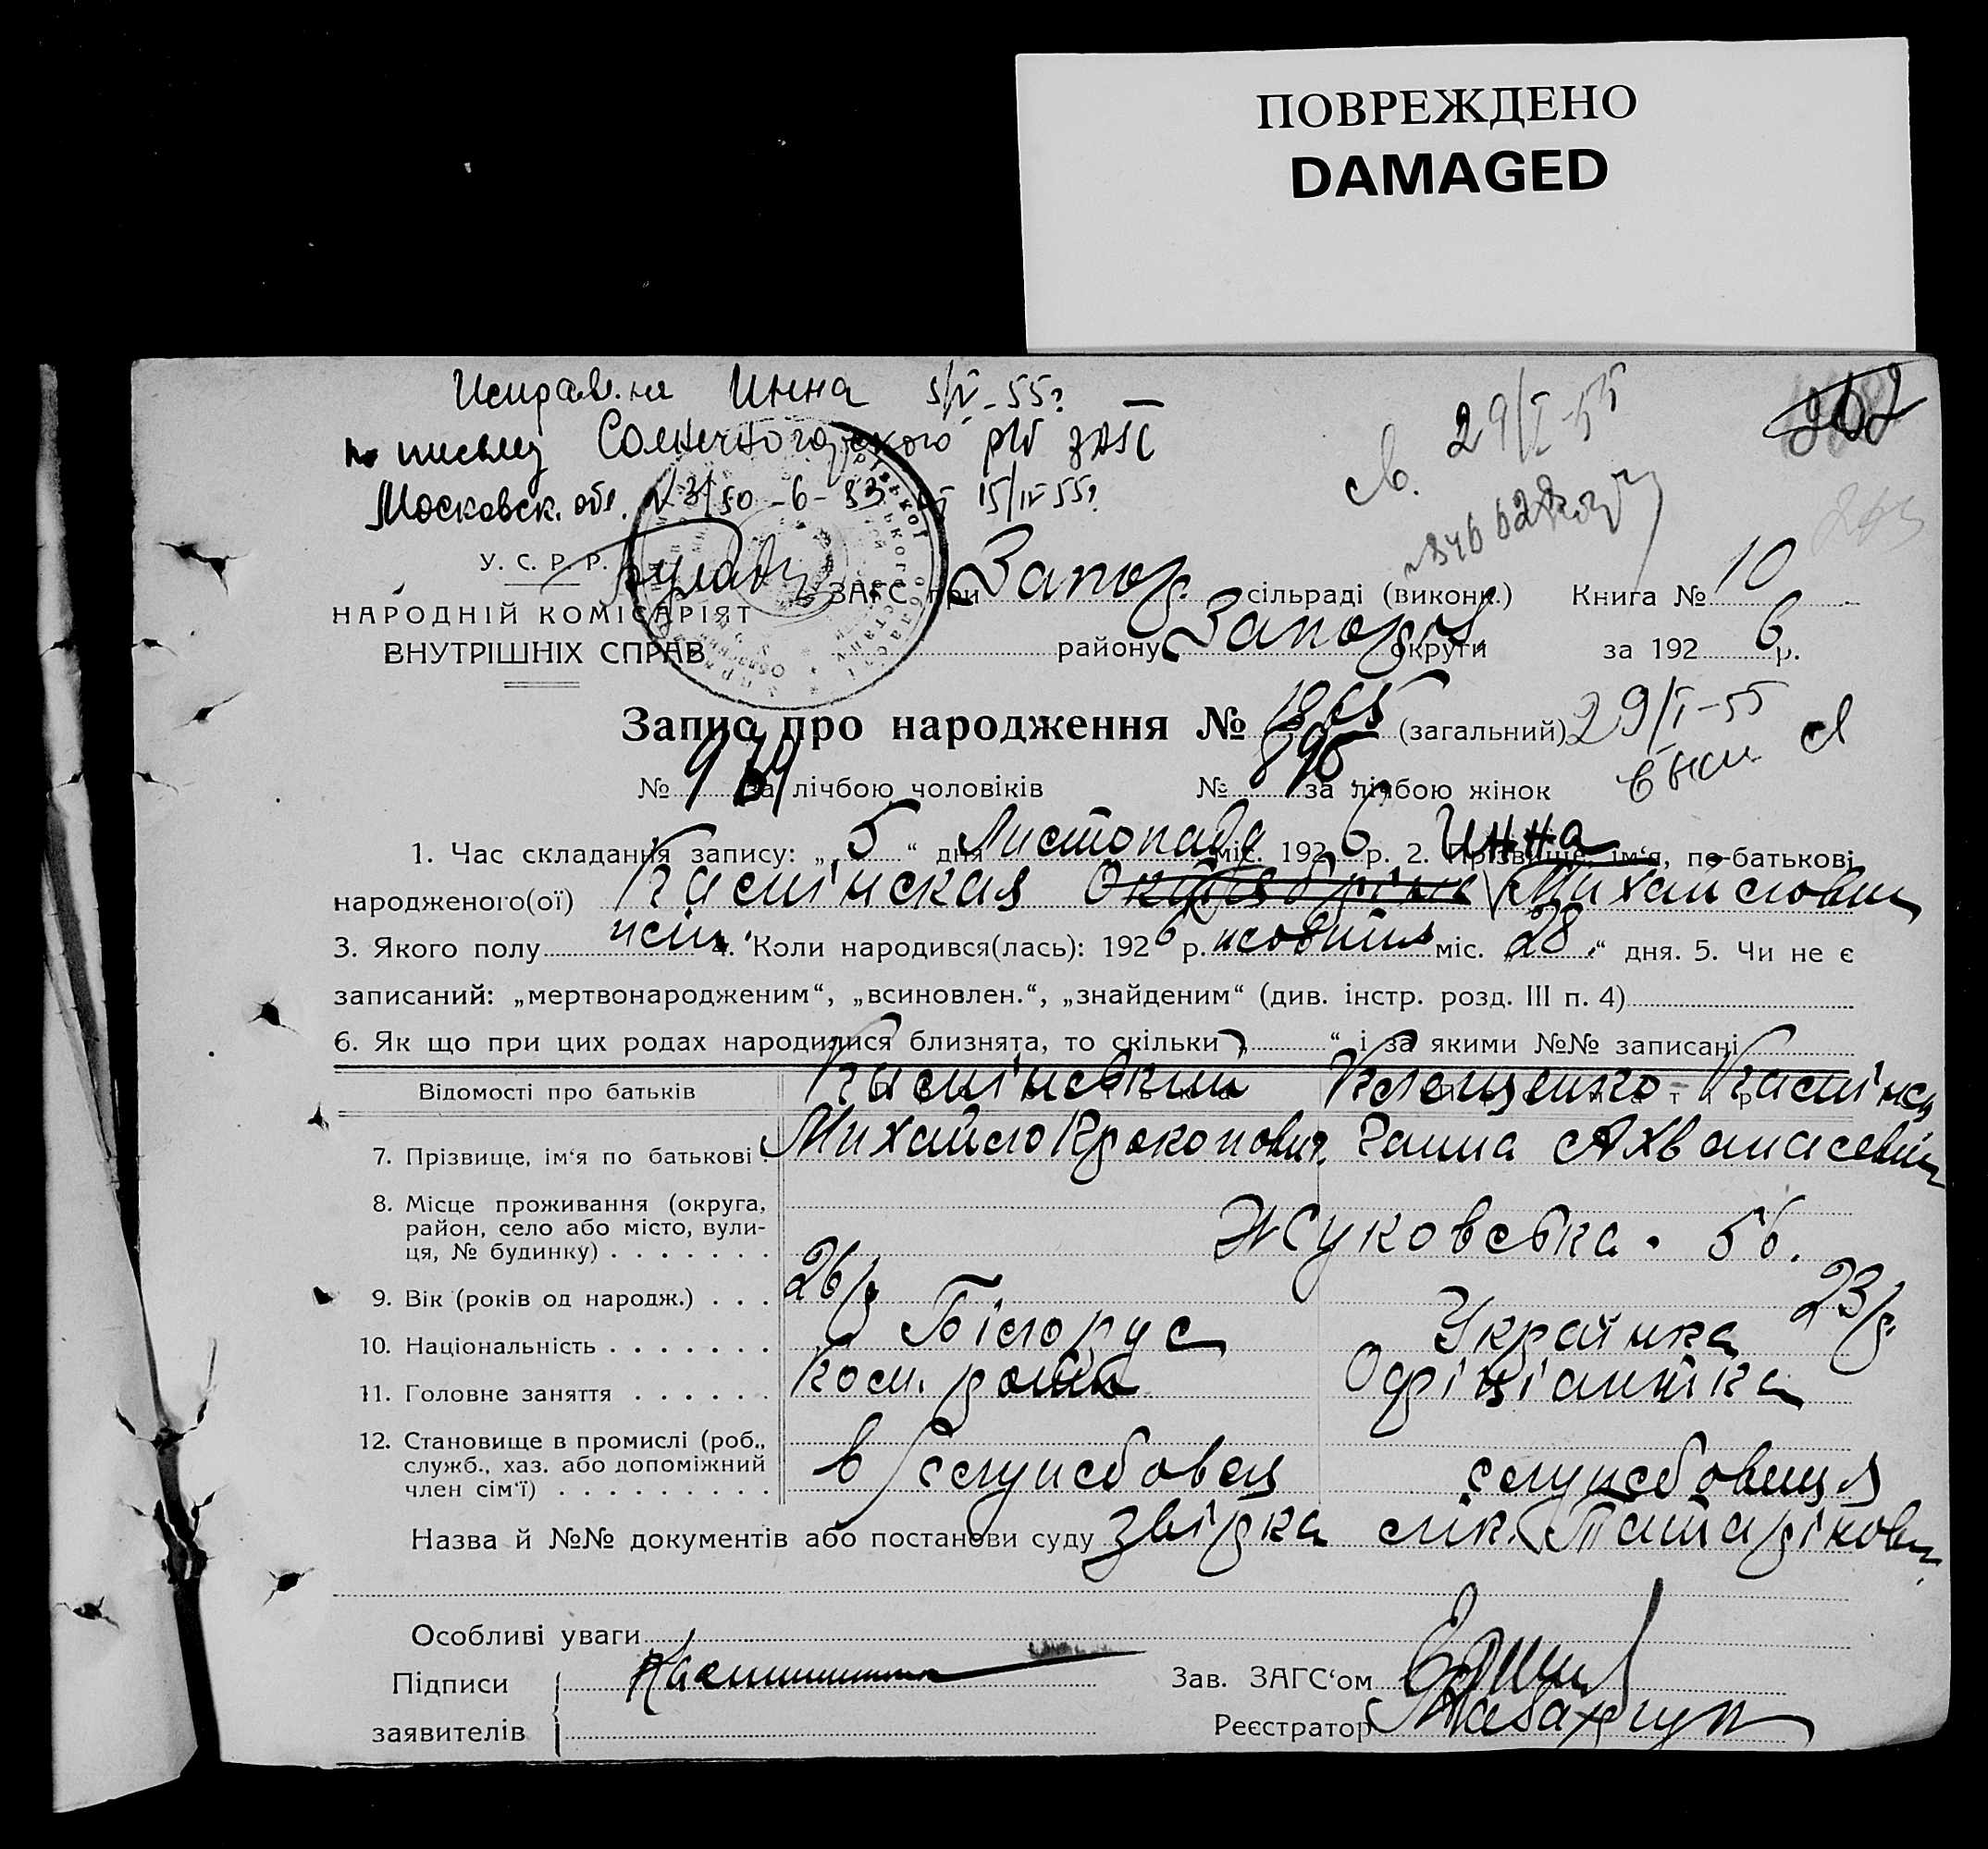 ПОВРЕЖДЕНО
DAMAGED
Исправ. на Инна 5/IV-55г
по письму Солнечногорского р/б ЗАГС
Московск. обл. № 3/50-6-53 15/IV 55г
св. 29/I-55
У. С. Р. Р.
НАРОДНІЙ КОМІСАРІЯТ
ВНУТРІШНІХ СПРАВ
ЗАГС при Запор. сільраді (викони.) Книга № 10
району Запоріз. округи за 1926 р.
Запис про народження № 1865 (загальний) 29/I-55
№ 969 за лічбою чоловіків № 896 за лічбою жінок
1. Час складання запису: „5“ дня Листопада міс. 1926 р. 2. Прізвище, ім‘я, по-батькові
Инна
народженого(ої) Каспінская Октябріна Михайловна
3. Якого полу жін. 4. Коли народився(лась): 1926 р. жовтня міс. „28“ дня. 5. Чи не є
записаний: „мертвонародженим“, „всиновлен.“, „знайденим“ (див. інстр. розд. III п. 4)
6. Як що при цих родах народилися близнята, то скільки „ “ і за якими №№ записані
Відомості про батьків Каспінський Клещенко-Каспінск
7. Прізвище, ім‘я по батькові Михайло Прокопович Ганна Ахванасевна
8. Місце проживання (округа,
район, село або місто, вули-
ця, № будинку) Жуковська. 56.
9. Вік (років од народж.) 26 р 23 р.
10. Національність Білорус Українка
11. Головне заняття Офіціянтка
12. Становище в промислі (роб.,
служб., хаз. або допоміжний
член сім‘ї) служебовец служебовиця
Назва й №№ документів або постанови суду звідка лік.
Особливі уваги
Підписи Зав. ЗАГС‘ом
заявителів Реєстратор